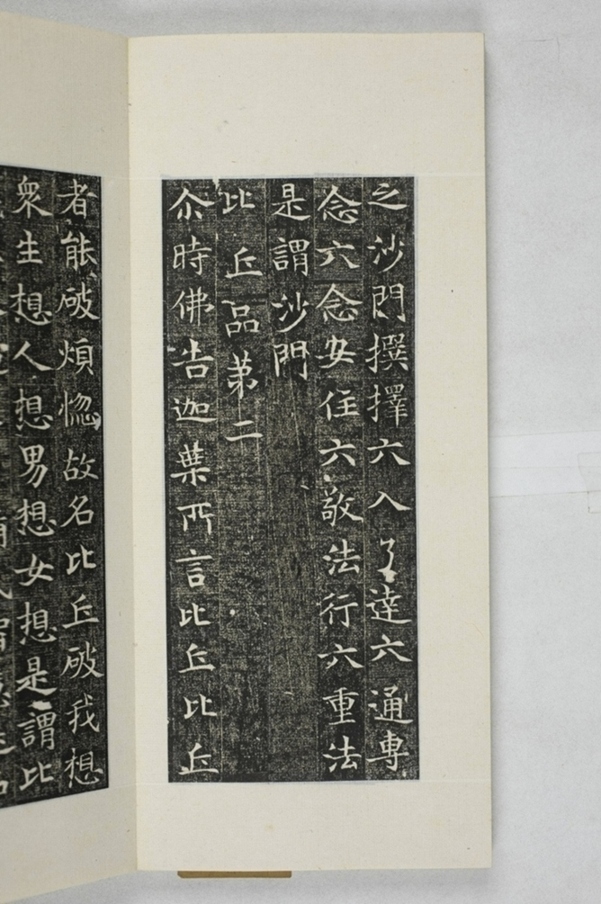 之沙門撰擇六入了達六通專
念六念安住六敬法行六重法
是謂沙門
比丘品第二
尒時佛告迦葉所言比丘比丘
者能破煩惱故名比丘破我想
衆生想人想男想女想是謂比